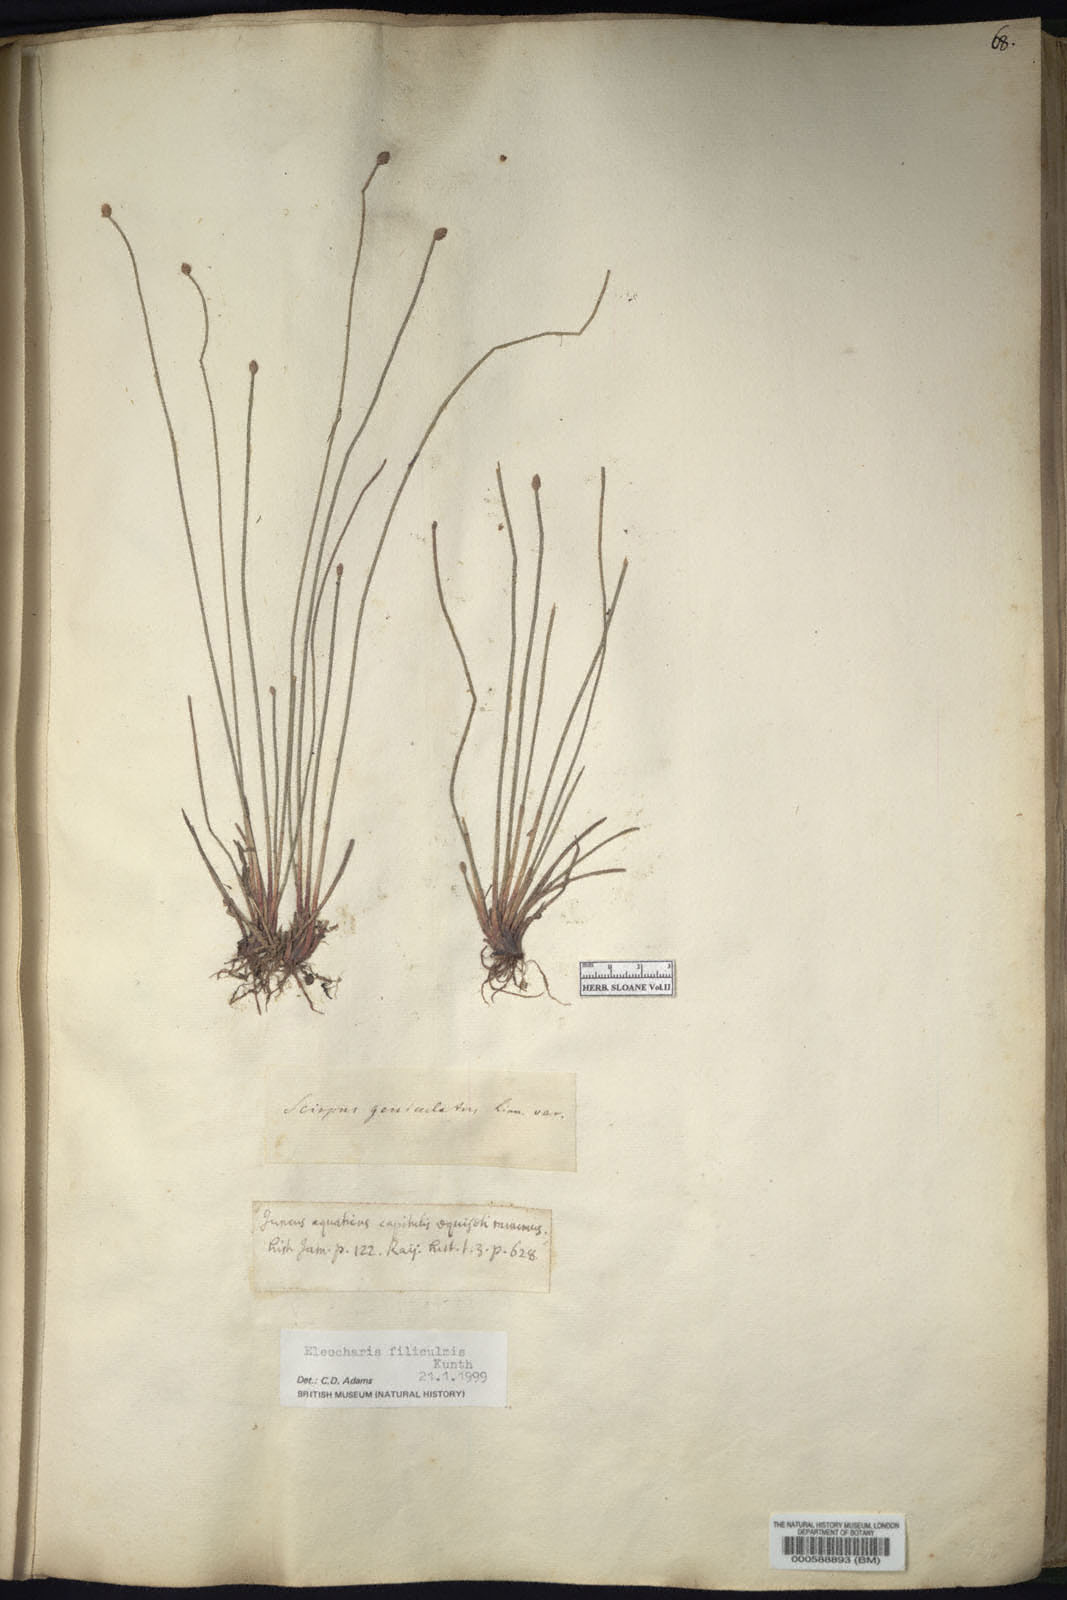 68.
mm 1 2 3
HERB. SLOANE Vol.II
Scirpus geniculatus Linn. var.
Juncus aquaticus capitulis equiseti minimus.
hist. Jam. p. 122. Raij. hist. t. 3. p. 628
Eleocharis filiculmis
Kunth
21.1.1999
Det.: C.D. Adams
BRITISH MUSEUM (NATURAL HISTORY)
THE NATURAL HISTORY MUSEUM, LONDON
DEPARTMENT OF BOTANY
000588893 (BM)